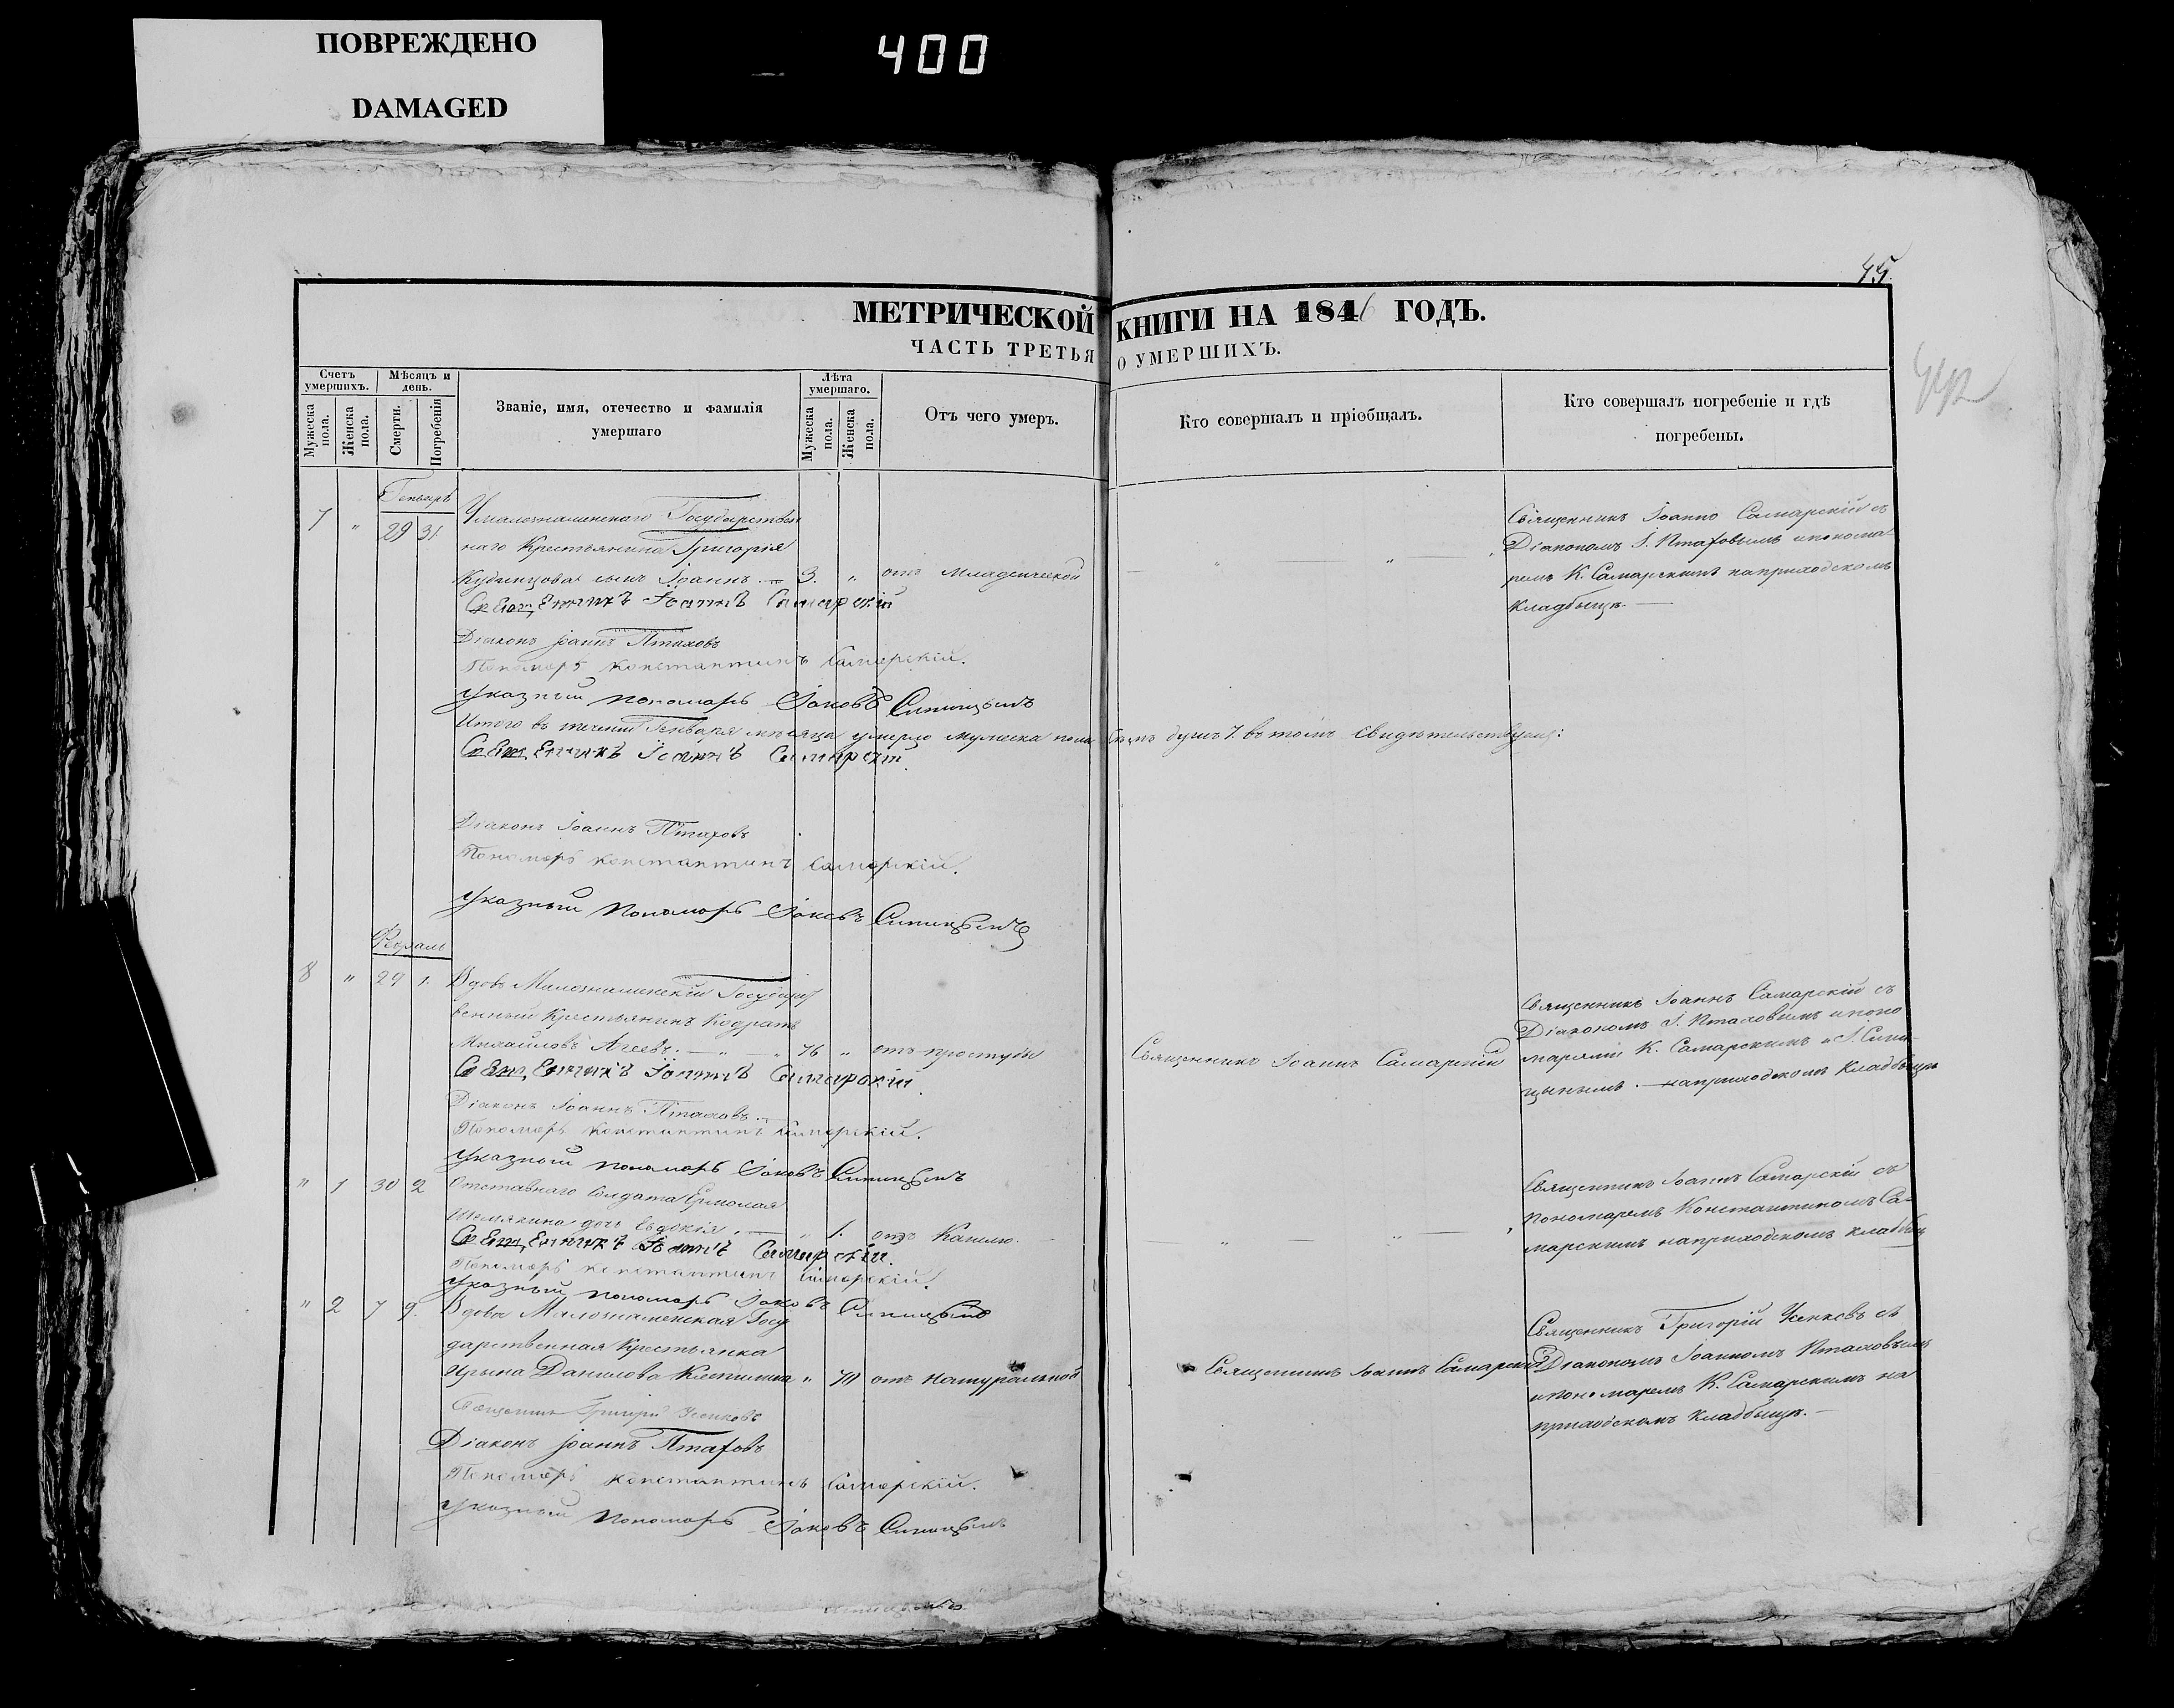 ПОВРЕЖДЕНО
DAMAGED
400
45.
МЕТРИЧЕСКОЙ КНИГИ НА 1846 ГОДЪ.
ЧАСТЬ ТРЕТЬЯ О УМЕРШИХЪ.
Счетъ умершихъ.
Мужеска пола.
Женска пола.
Мѣсяцъ и день.
Смерти.
Погребенія
Званіе, имя, отечество и фамилія умершаго
Лѣта умершаго.
Мужеска пола.
Женска пола.
Отъ чего умеръ.
Кто совершалъ и пріобщалъ.
Кто совершалъ погребеніе и гдѣ погребены.
Генварь
7 " 29 31.
Умалознаменскаго Государствен
наго Крестьянина Григорія
сынъ Іоаннъ. — 3. " отъ младенческой
Священникъ Іоаннъ Самарскій съ
Діакономъ І. Птаховымъ и понома
ремъ К. Самарскимъ наприходскомъ
кладбыщѣ. —
Священникъ Іоаннъ Самарскій
Діаконъ Іоаннъ Птаховъ
Пономарь Константинъ Самарскій.
Указный пономарь Іаковъ Синицынъ
Итого въ теченіи Генваря мѣсяца умерло мужеска пола семь душъ 7. въ томъ свидѣтельствуемъ:
Священникъ Іоаннъ Самарскій
Діаконъ Іоаннъ Птаховъ
Пономарь Константинъ Самарскій.
Указный пономарь Іаковъ Синицынъ
8 " 29 1.
Вдовъ Малознаменскій Государст
венный Крестьянинъ Кодратъ
Михайловъ Агеевъ. — " — " 76 " отъ простуды
Священникъ Іоаннъ Самарскій
Священникъ Іоаннъ Самарскій съ
Діакономъ І. Птаховымъ и поно
марями К. Самарскимъ и І. Сини
цынымъ. — наприходскомъ кладбыщѣ
Священникъ Іоаннъ Самарскій
Діаконъ Іоаннъ Птаховъ. —
Пономарь Константинъ Самарскій.
Указный пономарь Іаковъ Синицынъ
" 1 30 2
Отставнаго Солдата Ермолая
Шемякина дочь Евдокія. — " 1. отъ Кашлю.
Священникъ Іоаннъ Самарскій съ
пономаремъ Константиномъ Са-
марскимъ наприходскомъ кладбыщ
Священникъ Іоаннъ Самарскій.
Пономарь Константинъ Самарскій.
Указный пономарь Іаковъ Синицынъ
" 2 7 9.
Вдова Малознаменская Госу
дарственная Крестьянка
Данилова " отъ натуральной
Священникъ Іоаннъ Самарскій
Священникъ Григорій съ
Діакономъ Іоанномъ Птаховымъ
и пономаремъ К. Самарскимъ на
приходскомъ кладбыщѣ. —
Священникъ Григорій
Діаконъ Іоаннъ Птаховъ
Пономарь Константинъ Самарскій.
Указный пономарь Іаковъ Синицынъ